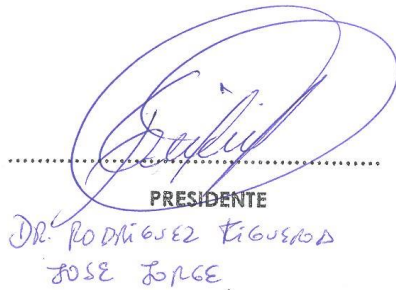 PRESIDENTE
DR. RODRIGUEZ FIGUEROA
JOSE JORGE